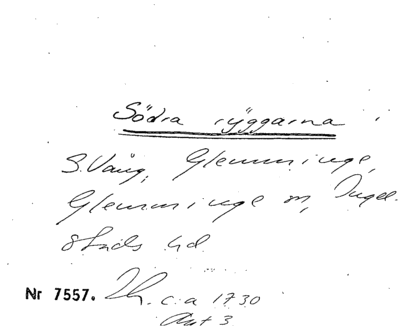 Södra ryggarna
S. Vång, Glemminge,
Glemminge sn, Ingel-
stads hd
Nr 7557. Lh. c:a 1730
Akt 3